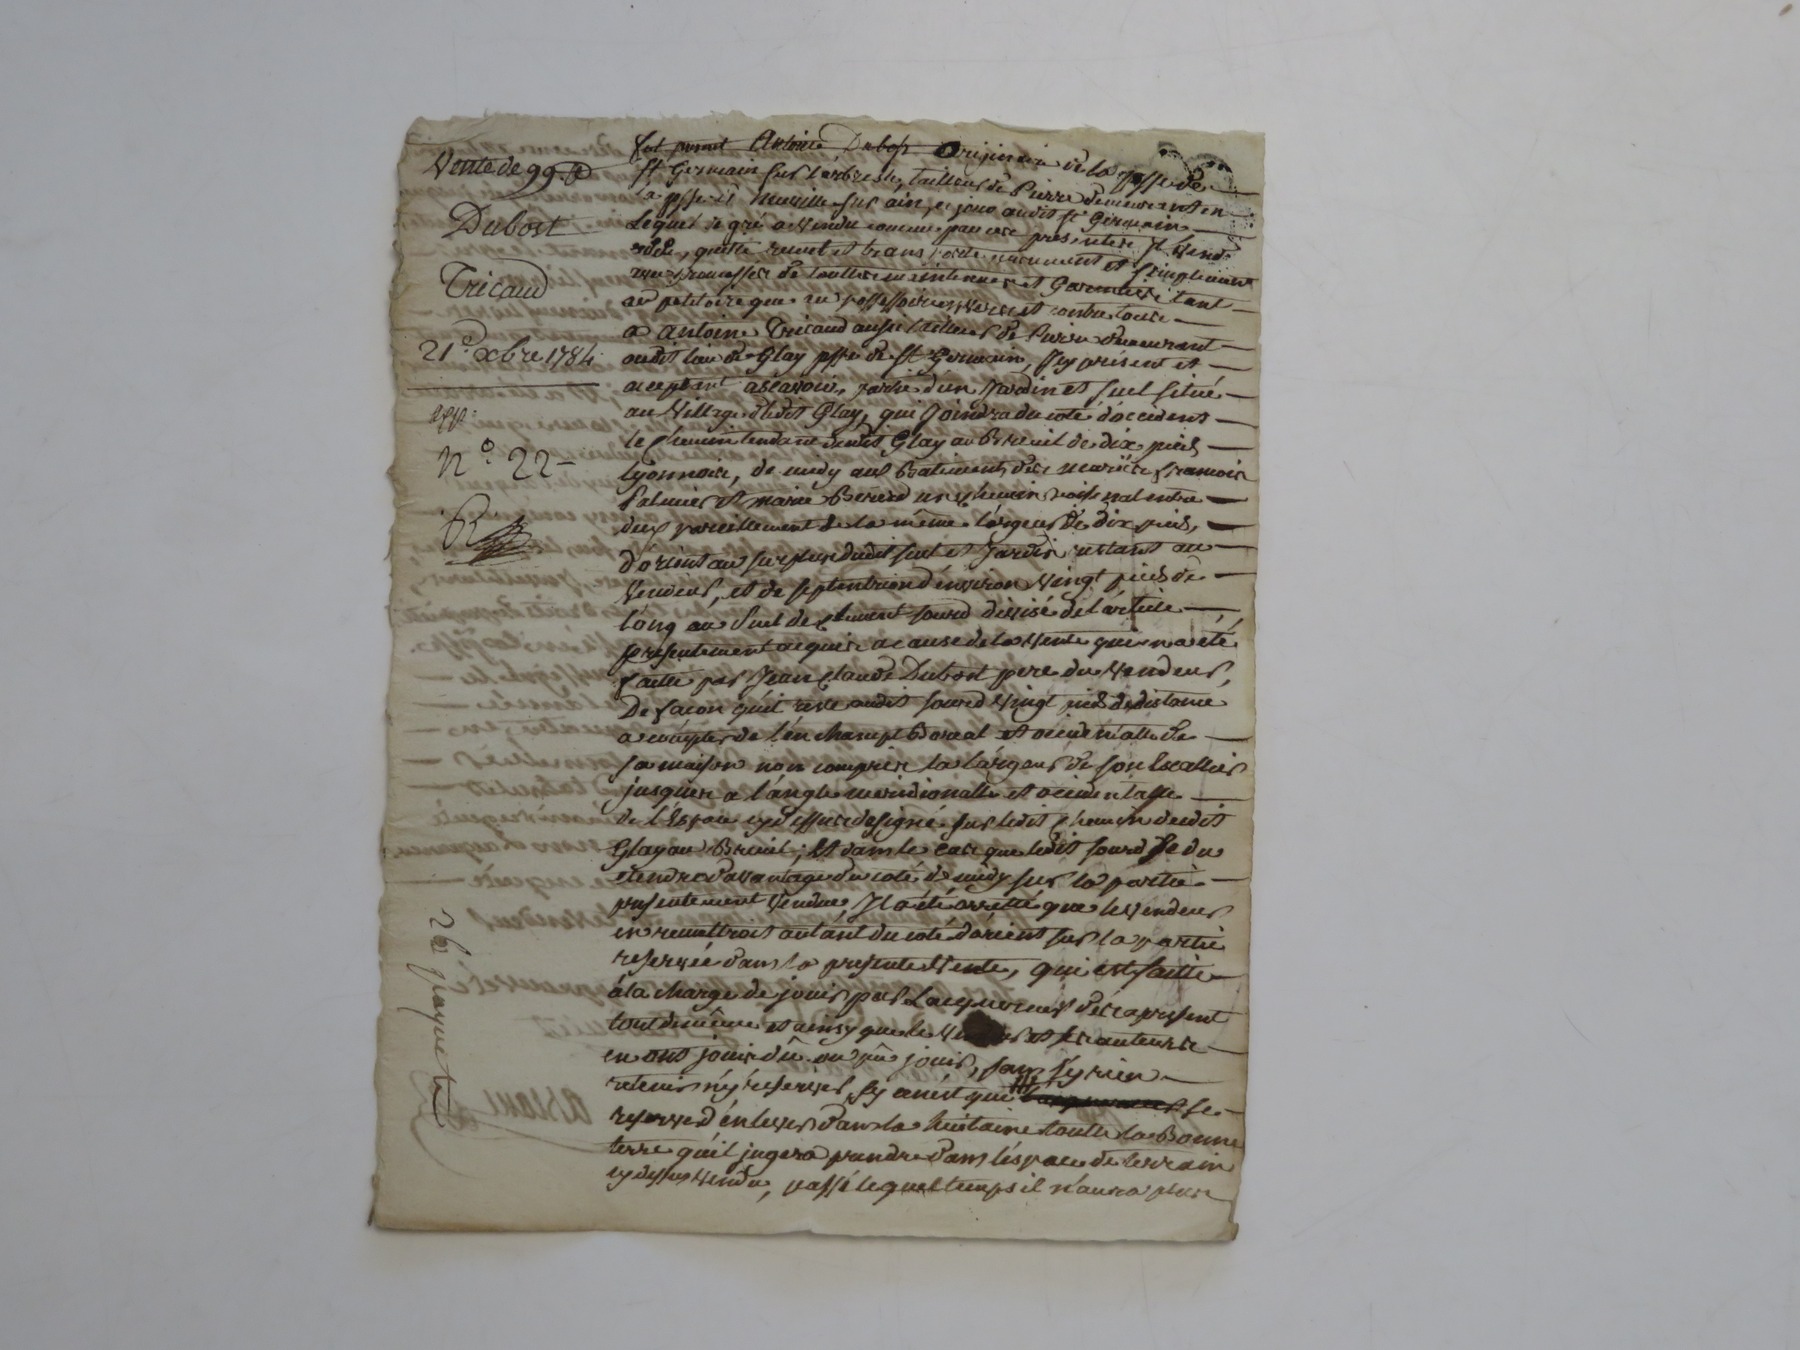 Vente de 99 lt
Dubost
Tricaud
21e Xbre 1784
exp.
N.° 22
fut present Antoine Dubost originaire de la psse de
st Germain sur l'arbresle, tailleur de Pierre demeurant en
la psse de Neuville sur ain, ce jour audit st Germain
Lequel de gré a Vendu comme par ces presentes Il Vend
cede, quitte remet et transporte purement et simplement
avec promesse de touttes maintenues et Garanties tant
au petitoire que au possessoire envers et contre tous
a antoine Tricaud aussi tailleur de Pierre demeurant
audit lieu de Glay psse de st Germain, Icy présent et
acceptant ascavoir, partie d'un Jardin et suel situé
au Village dudit Glay, qui Joindra du coté d'occident
le chemin tendant dudit Glay au Breuil de dix pieds
Lyonnois, de midy aux Batiments des mariés francois
Palmier et marie Bererd un chemin voisinal entre
deux pareillement de la même largeur de dix pieds,
d'orient au surplus dudit suel et Jardin restant au
Vendeur, et de septentrion d'environ Vingt pieds de
long au suel de clement sourd divisé de l'article
presentement acquis a cause de la Vente qui en a été
faitte par Jean Claude Dubost pere du Vendeur,
De facon qu'il reste audit sourd Vingt pieds de distance
a compter de l'en champt Boreal et occidentalle de
sa maison non compris la largeur de son Escallier
jusques a l'angle meridionalle et occidentalle
de l'Espace cy dessus designé sur ledit chemin dudit
Glay au Breuil; Et dans le cas que ledit sourd se du
etendre davantage du coté de midy sur la partie
presentement Vendue, Il a été arretté que le Vendeur
en remettroit autant du coté d'orient sur la partie
reservée dans la presente Vente, qui est faitte
à la charge de jouir par L'acquereur dès a present
tout de même et ainsy que le Vendeur et ses auteurs
en ont jouis dû ou pû jouir, sans sy rien
retenir n'y reserver, sy ce n'est que se
reserve d'enlever dans la huitaine toutte la Bonne
terre qu'il jugera prendre dans l'éspace de terrain
cy dessus Vendu, passé lequel temps il n'aura plus